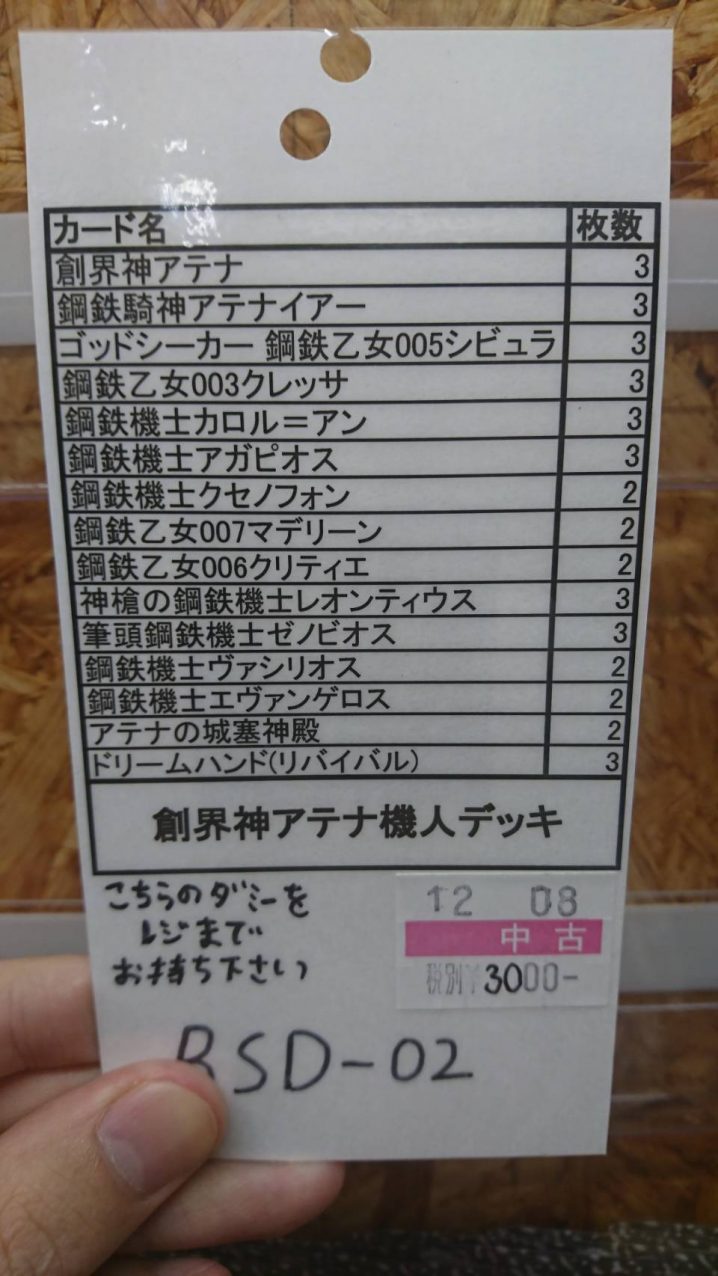 カード名 枚数
創界神アテナ 3
鋼鉄騎神アテナイアー 3
ゴッドシーカー 鋼鉄乙女005シビュラ 3
鋼鉄乙女003クレッサ 3
鋼鉄機士カロル＝アン 3
鋼鉄機士アガピオス 3
鋼鉄機士クセノフォン 2
鋼鉄乙女007マデリーン 2
鋼鉄乙女006クリティエ 2
神槍の鋼鉄機士レオンティウス 3
筆頭鋼鉄機士ゼノビオス 3
鋼鉄機士ヴァシリオス 2
鋼鉄機士エヴァンゲロス 2
アテナの城塞神殿 2
ドリームハンド(リバイバル) 3
創界神アテナ機人デッキ
こちらのダミーを
レジまで
お持ち下さい
12 08
中古
税別¥3000-
BSD-02